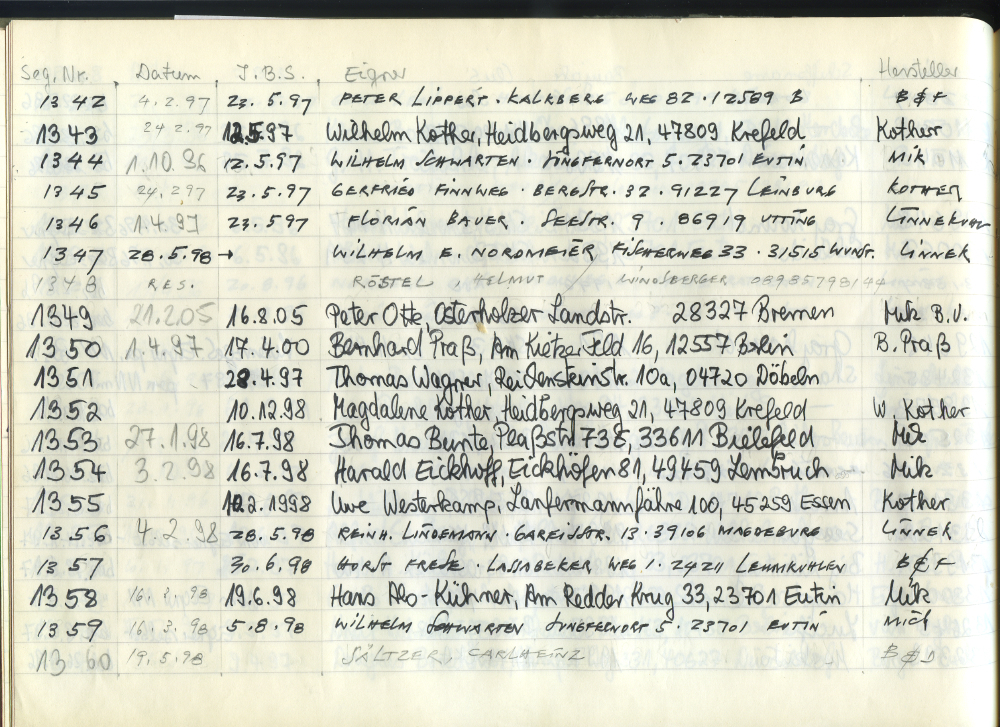 Seg. Nr. Datum J.B.S. Eigner Hersteller
1342 4.2.97 23.5.97 PETER LIPPERT · KALKBERG WEG 82 · 12589 B B & F
1343 24.2.97 12.5.97 Wilhelm Kother, Heidbergsweg 21, 47809 Krefeld Kother
1344 1.10.96 12.5.97 WILHELM SCHWARTEN · JUNGFERNORT 5 · 23701 EUTIN Mik
1345 24.2.97 23.5.97 GERFRIED FINNWEG · BERGSTR. 32 · 91227 LEINBURG KOTHER
1346 1.4.97 23.5.97 FLORIAN BAUER · SEESTR. 9 · 86919 UTTING
1347 28.5.98 → WILHELM E. NORDMEIER FISCHERWEG 33 · 31515 WUNST. LINNER
1348 RES. RÖSTEL HELMUT / LINDSBERGER 08985793144
1349 21.2.05 16.8.05 Peter Otte, Osterholzer Landstr. 28327 Bremen Mik B.V.
1350 1.4.97 17.4.00 Bernhard Praß, Am Kietzer Feld 16, 12557 Berlin B. Praß
1351 28.4.97 Thomas Wagner, Reidensteinstr. 10a, 04720 Döbeln
1352 10.12.98 Magdalene Kother, Heidbergsweg 21, 47809 Krefeld W. Kother
1353 27.1.98 16.7.98 Thomas Bunte, Plaßstr 73B, 33611 Bielefeld Mik
1354 3.2.98 16.7.98 Harald Eickhoff, Eickhöfen 81, 49459 Lembruch Mik
1355 10.2.1998 Uwe Westerkamp, Lanfermannfähre 100, 45259 Essen Kother
1356 4.2.98 28.5.98 REINH. LINDEMANN · GAREISSTR. 13 · 39106 MAGDEBURG LINNER
1357 30.6.98 HORST FRESE · LASSABEKER WEG 1 · 24211 LEHMKUHLEN B & F
1358 16.2.98 19.6.98 Hans Alo-Kühner, Am Redder Krug 33, 23701 Eutin Mik
1359 16.3.98 5.8.98 WILHELM SCHWARTEN JUNGFERNORT 5 · 23701 EUTIN
1360 19.5.98 SÄLTZER, CARLHEINZ B & D